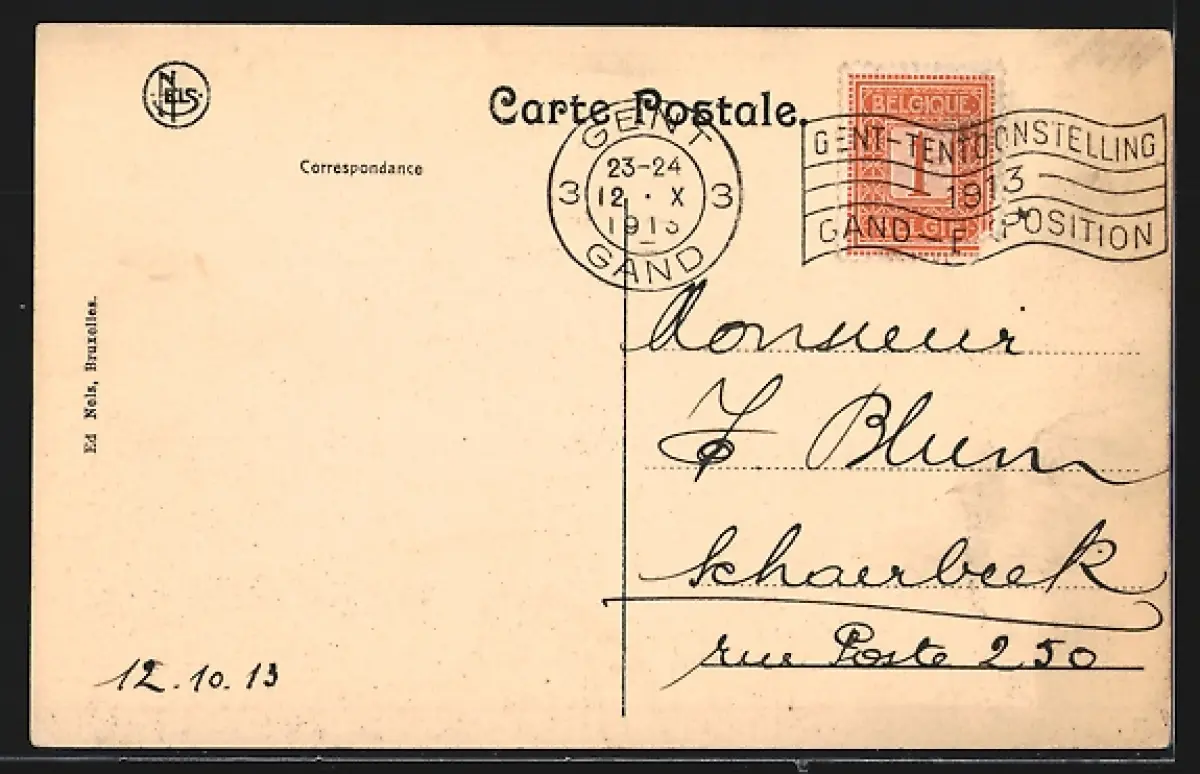 NELS
Carte Postale.
Correspondance
GENT
3 23-24 3
12 · X
1913
GAND
BELGIQUE
1
BELGIË
GENT-TENTOONSTELLING
1913
GAND-EXPOSITION
Ed Nels, Bruxelles.
Monsieur
Blum
Schaerbeek
rue Poste 250
12.10.13